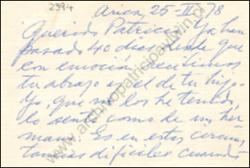 2394
Arica 25-III-78
Querido Patricio: Ya han
pasado 40 días desde que
con emoción recibimos
tu abrazo y el de tu hi-
jo, que me los he tenido,
lo siento como de un her
mano. Es en estas circuns
tancias difíciles cuando